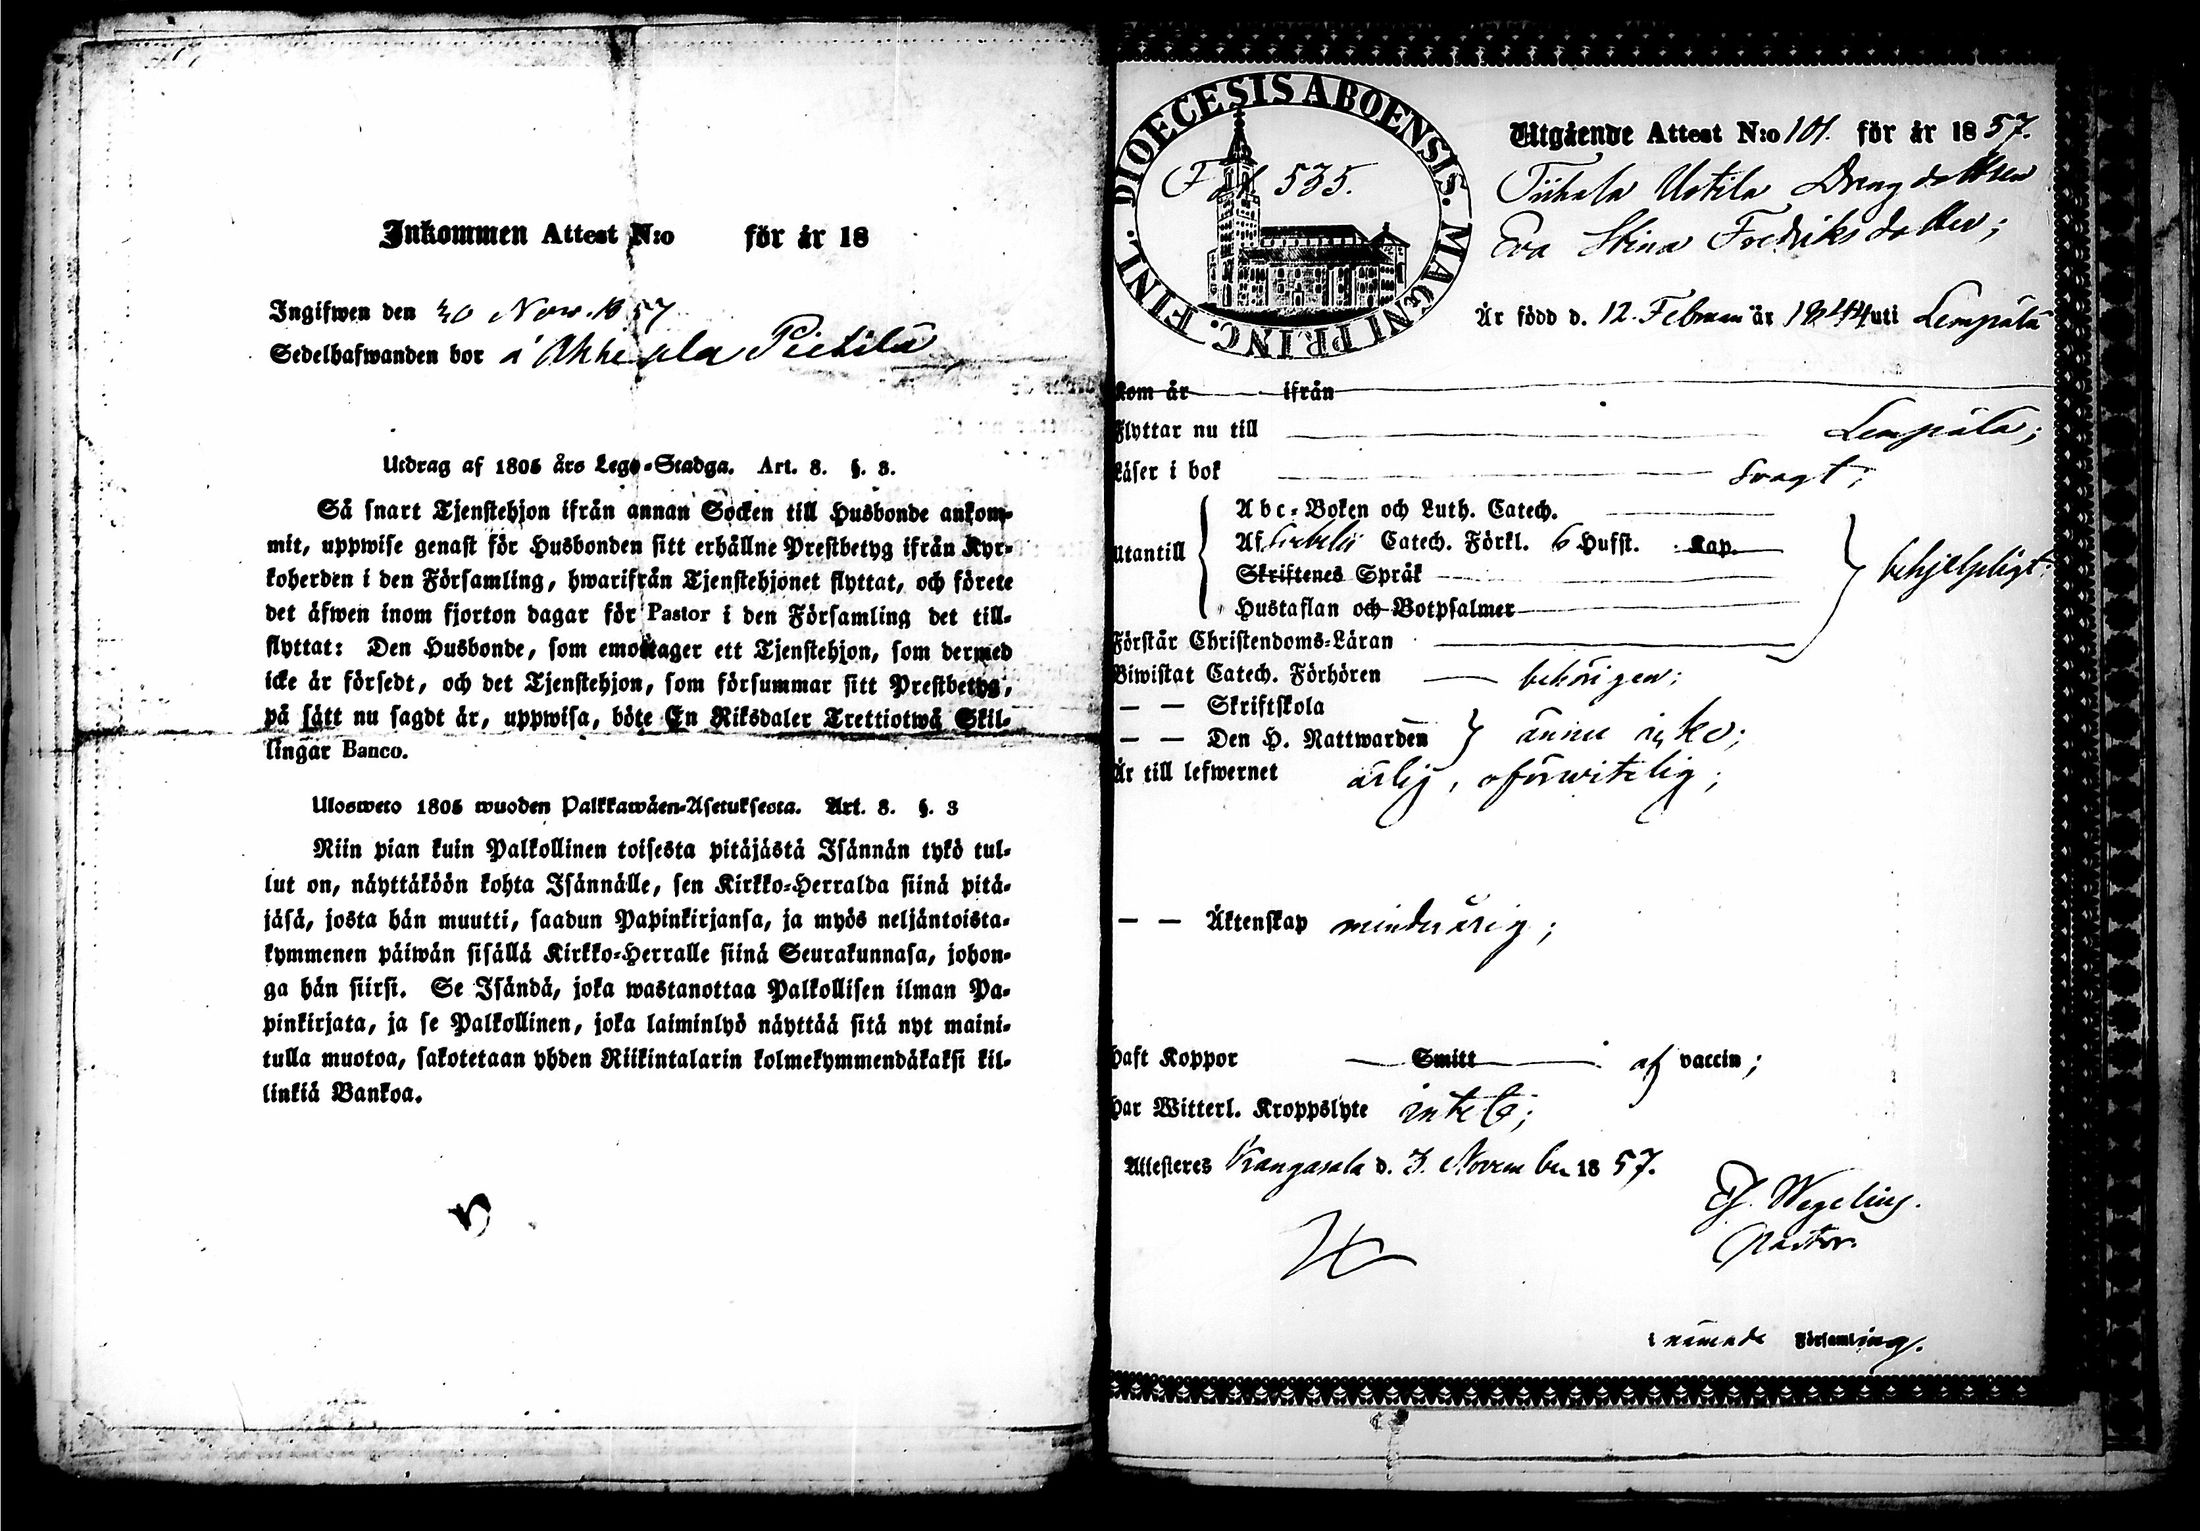 Inkommen Attest N:o för år 18
Ingifwen den 30 Nov. 1857
Sedelhafwanden bor á Ahtiala Pietilä
Utdrag af 1805 års Lego-Stadga. Art. 8. §. 3.
Så snart Tjenstehjon ifrån annan Socken till Husbonde ankom-
mit, uppwise genast för Husbonden sitt erhållne Prestbetyg ifrån Kyr-
koherden i den Församling, hwarifrån Tjenstehjonet flyttat, och förete
det äfwen inom fjorton dagar för Pastor i den Församling det till-
flyttat: Den Husbonde, som emottager ett Tjenstehjon, som dermed
icke är försedt, och det Tjenstehjon, som försummar sitt Prestbetyg,
på sätt nu sagdt är, uppwisa, böte En Riksdaler Trettiotwå Skil-
lingar Banco.
Ulosweto 1805 wuoden Palkkawäen-Asetuksesta. Art. 8. §. 3
Niin pian kuin Palkollinen toisesta pitäjästä Isännän tykö tul-
lut on, näyttäköön kohta Isännälle, sen Kirkko-Herralda siinä pitä-
jäsä, josta hän muutti, saadun Papinkirjansa, ja myös neljäntoista-
kymmenen päiwän sisällä Kirkko-Herralle siinä Seurakunnasa, johon-
ga hän siirsi. Se Isändä, joka wastanottaa Palkollisen ilman Pa-
pinkirjata, ja se Palkollinen, joka laiminlyö näyttää sitä nyt maini-
tulla muotoa, sakotetaan yhden Riikintalarin kolmekymmendäkaksi kil-
linkiä Bankoa.
DIOECESIS ABOENSIS. MAGNI PRINC. FINL.
Fol. 535.
Utgående Attest N:o 101. för år 1857.
Tiihala Uotila Drengdottren
Eva Stina Fredriksdotter;
Är född d. 12 Februari år 1844 uti Lempälä
Kom år ifrån
Flyttar nu till Lempälä;
Läser i bok svagt;
Utantill
Abc-Boken och Luth. Catech.
Af Svebelii Catech. Förkl. 6 Hufst. Kap.
Skriftenes Språk
behjelpligt;
Hustaflan och Botpsalmer
Förstår Christendoms-Läran
Biwistat Catech. Förhören behörigen;
— — Skriftskola
— — Den H. Nattwarden ännu icke;
Är till lefwernet ärlig, oförwitelig;
— — Äktenskap minderårig;
Haft Koppor Smitt af vaccin;
Har Witterl. Kroppslyte inteta;
Attesteres Kangasala d. 3. November 1857.
Wegelius.
Pastor.
i nämnde Församling.